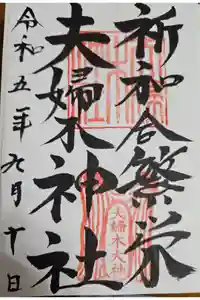 祈和合繁栄
夫婦木神社
令和五年九月十日
夫婦木大神